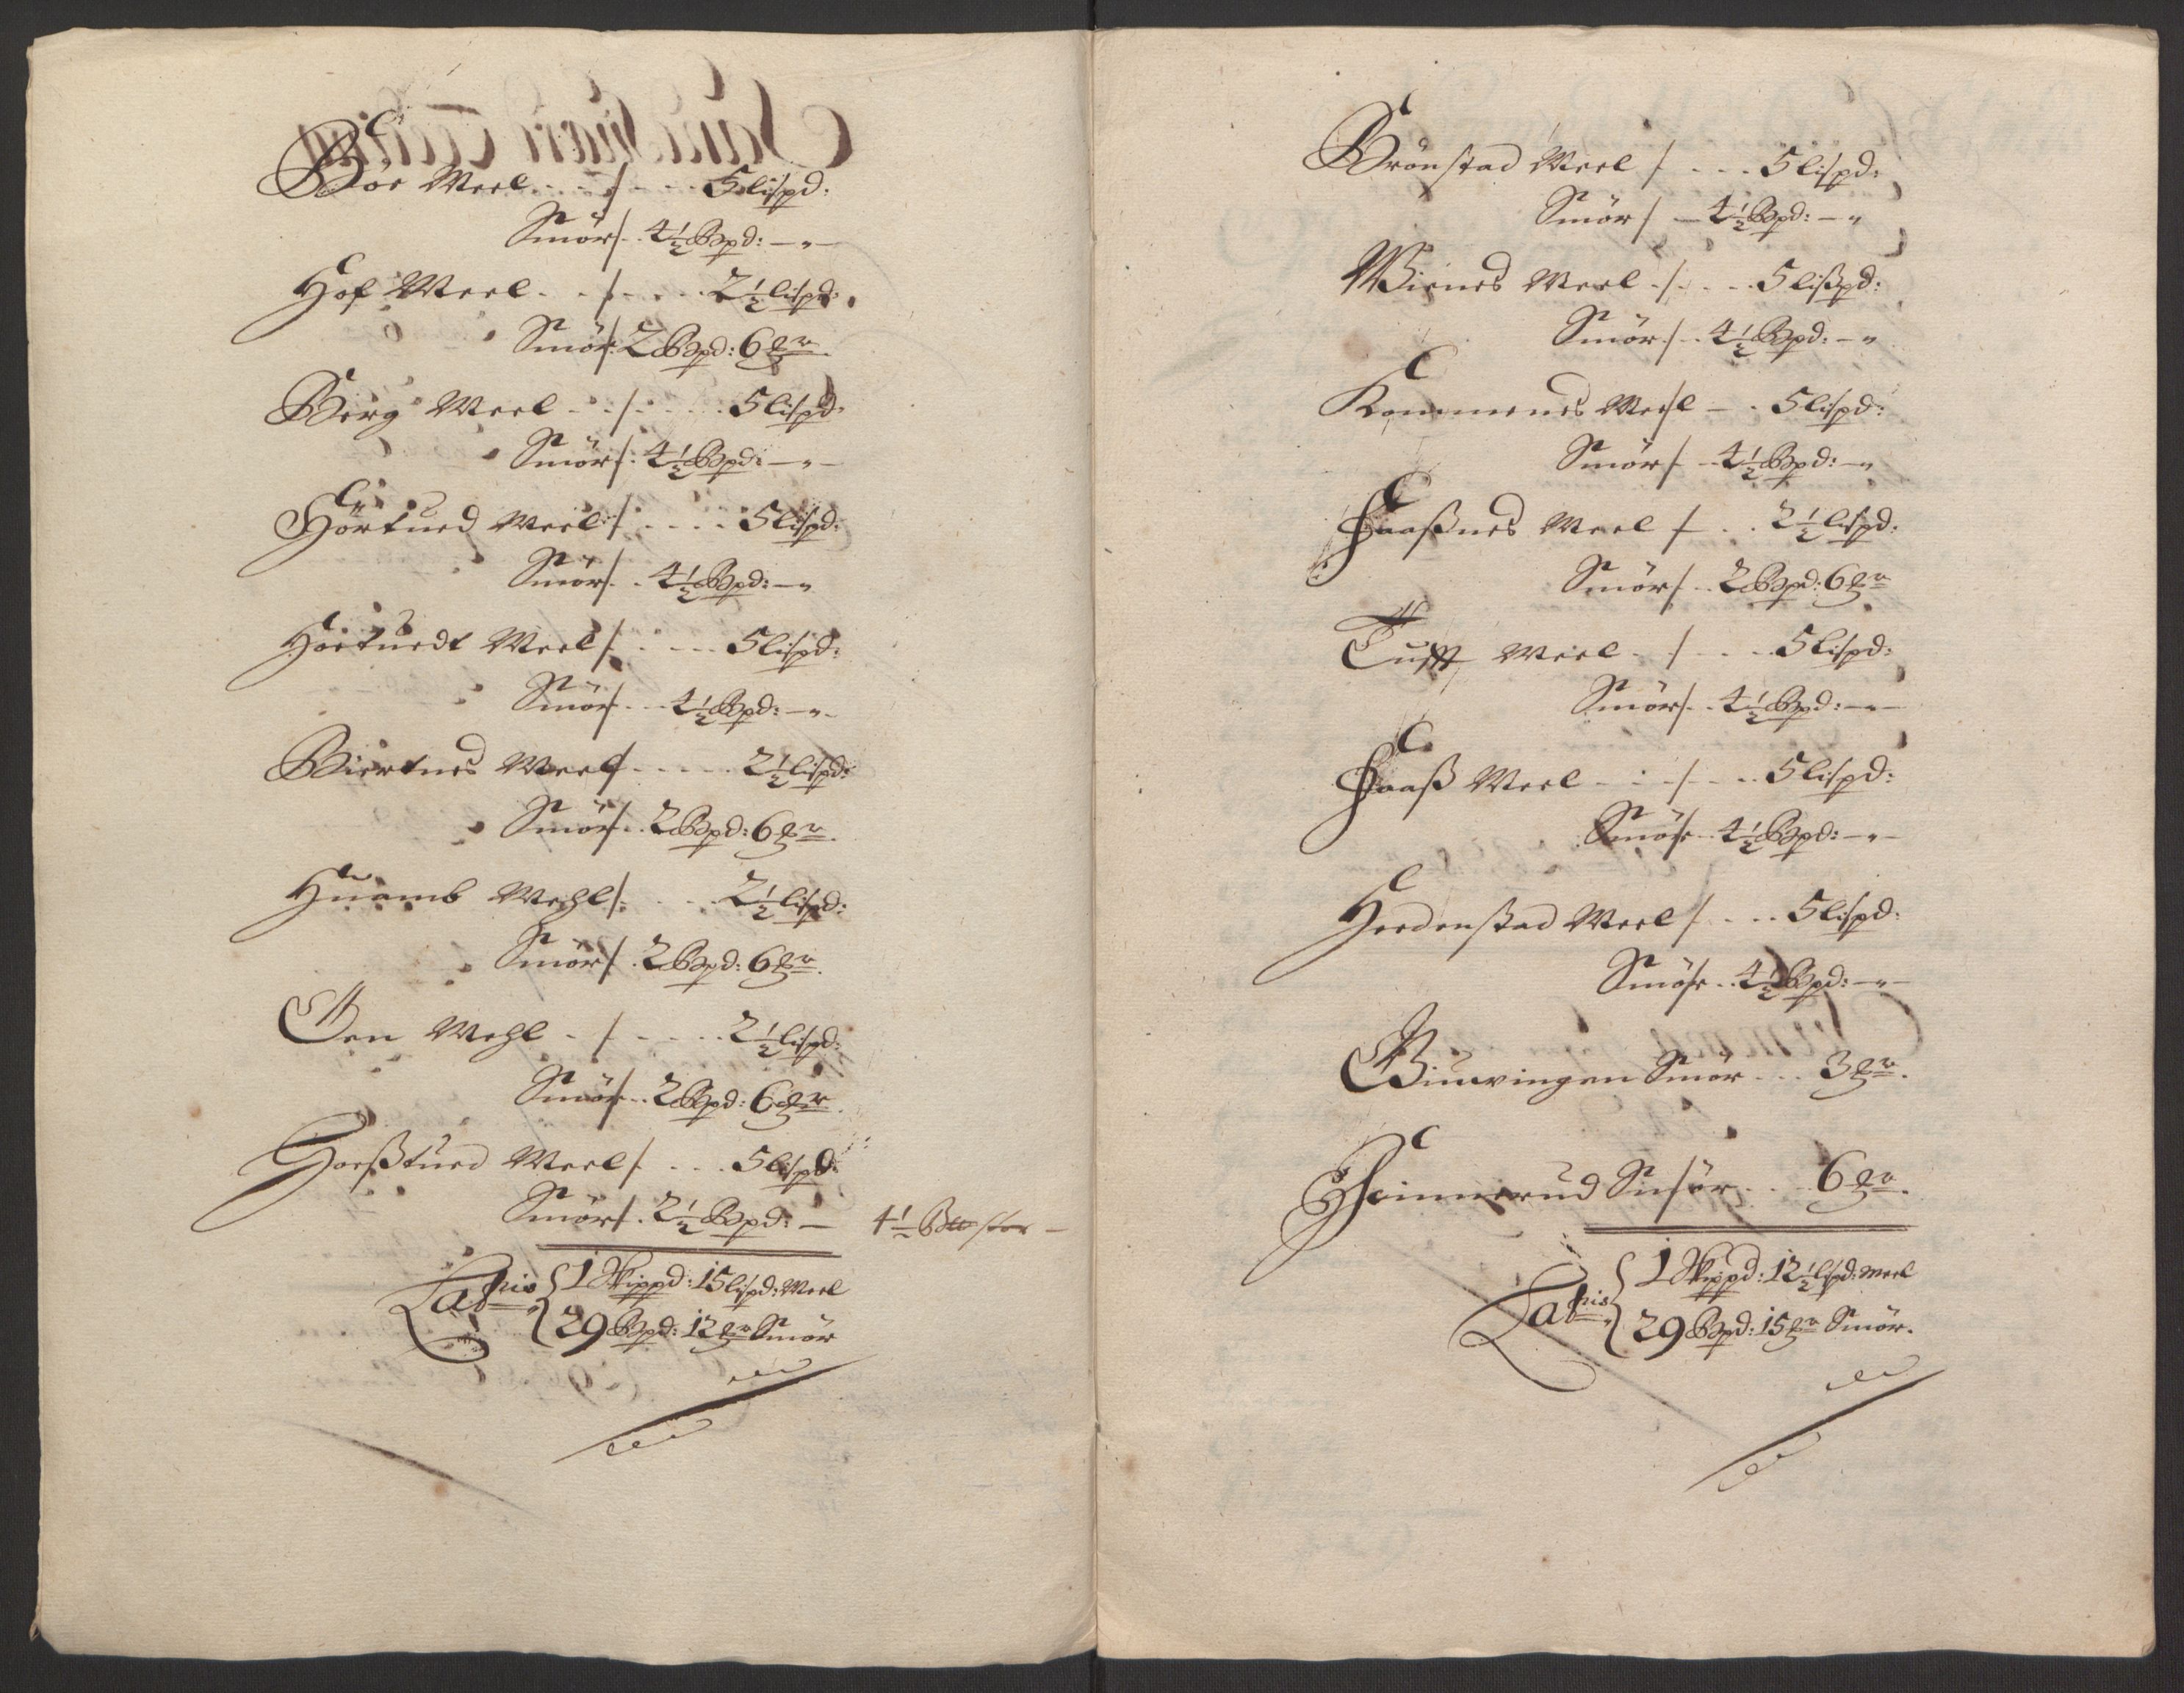 Böe Meel 5 lispd:
Smör 4½ Bpd: — " —
Hof Meel 2½ lispd:
Smör 2 Bpd: 6 
Berg Meel 5 lispd
Smör 4½ Bpd: — " —
Hörtued Meel 5 lispd:
Smör 4½ Bpd: — "
Hörtuedt Meel 5 lispd:
Smör 4½ Bpd: — " —
Biertnes Meel 2½ lispd:
Smör 2 Bpd: 6
Huamb Mehl 2½ lispd:
Smör 2 Bpd: 6
Oen Mehl 2½ lispd:
Smör 2 Bpd: 6
Goeßtued Meel 5 lispd:
Smör 2½ Bpd: — 4½
Latris { 1 Skippd: 15 lispd: Meel
29 Bpd: 12 Smör
Brönstad Meel 5 lispd:
Smör — 4½ Bpd: — "
Wienes Meel 5 lißpd:
Smör 4½ Bpd: — "
Kommenes Meel — 5 lispd:
Smör — 4½ Bpd: — "
Faaßnes Meel 2½ lispd:
Smör 2 Bpd: 6
Tufft Meel 5 lispd:
Smör 4½ Bpd: — " —
Faaß Meel 5 lispd:
Smör 4½ Bpd: — " —
Hedenstad Meel 5 lispd:
Smör 4½ Bpd: — " —
Biuvingen Smör 3
Heimerud Smör 6
Latris { 1 Skippd: 12½ lispd: Meel
29 Bpd: 15 Smör.